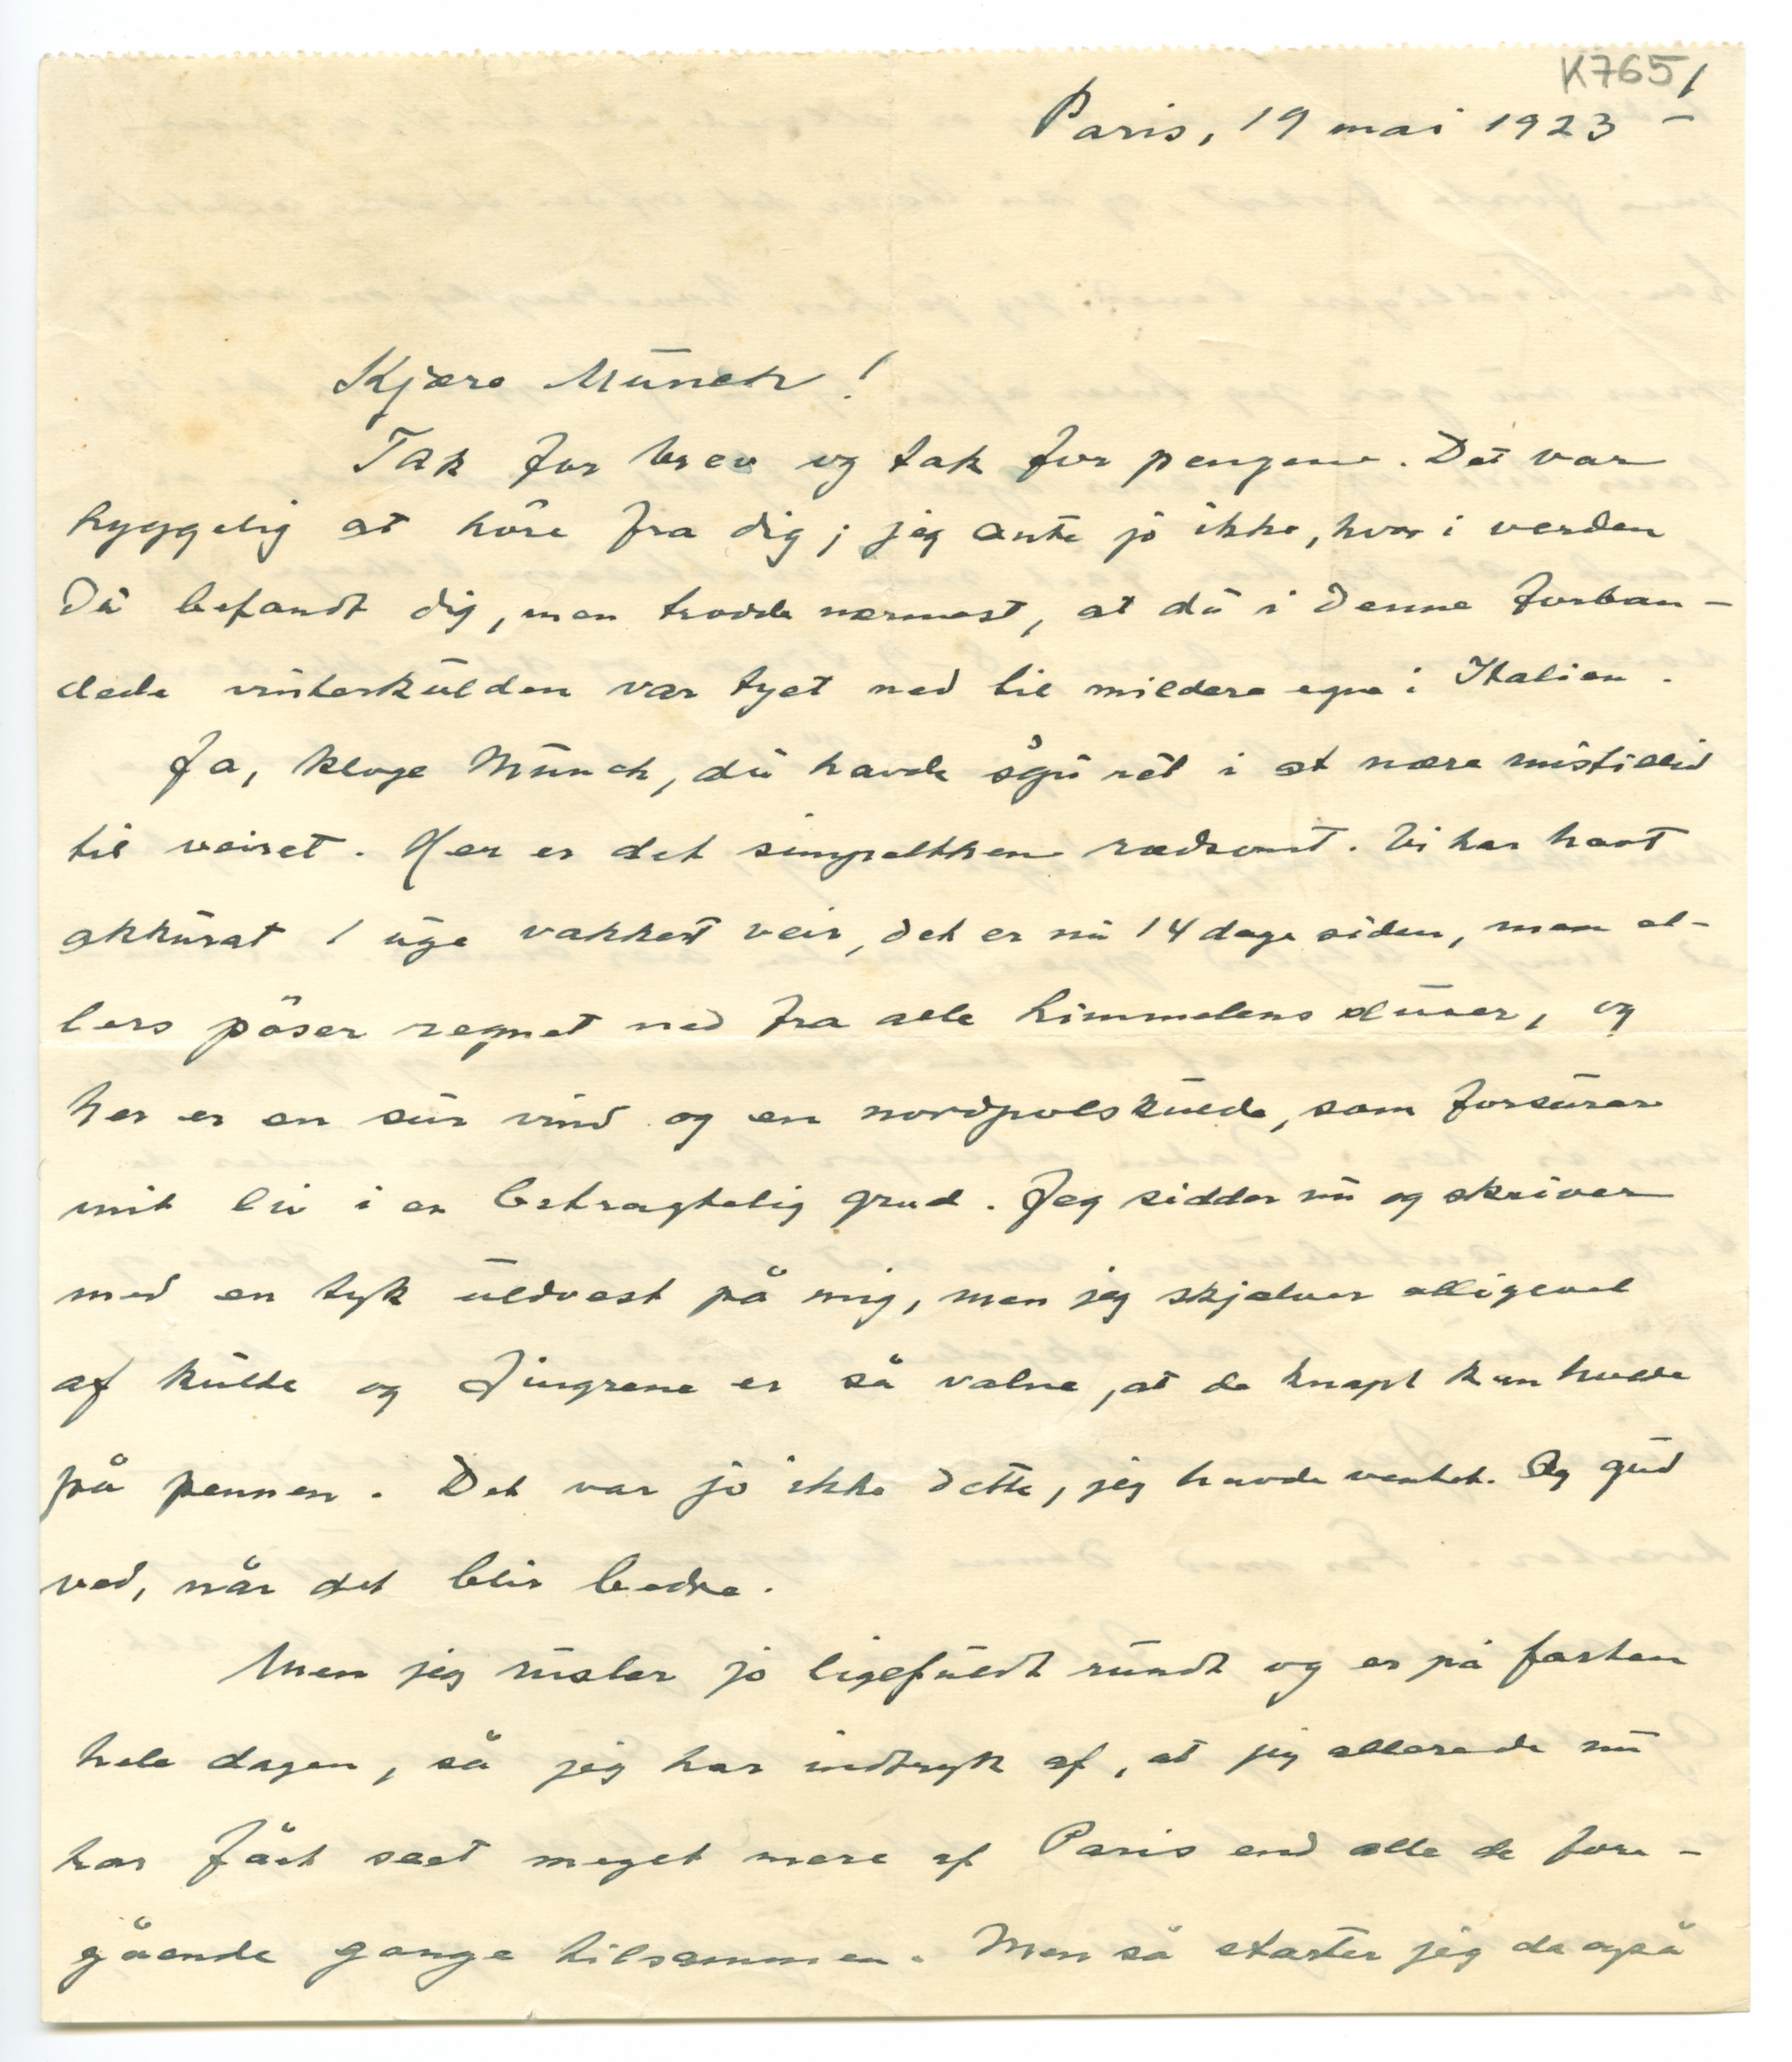 K765 /
Paris, 19 mai 1923 –
Kjære Munch!
Tak for brev og tak for pengene. Det var
hyggelig at höre fra dig; jeg ante jo ikke, hvor i verden
du befandt dig, men trodde nærmest, at du i denne forban-
dede vinterkulden var tyet ned til mildere egne i Italien.
Ja, kloge Munch, du havde sgu rét i at nære mistillid
til veiret. Her er det simpelthen rædsomt. Vi har havt
akkurat 1 uge vakkert veir, det er nu 14 dage siden, men el-
lers pöser regnet ned fra alle himmelens sluser, og
her er en sur vind og en nordpolskulde, som forsurer
mit liv i en betragtelig grad. Jeg sidder nu og skriver
med en tyk uldvest på mig, men jeg skjælver alligevel
af kulde og fingrene er så valne, at de knapt kan holde
på pennen. Det var jo ikke dette, jeg havde ventet. Og gud
ved, når det blir bedre.
Men jeg rusler jo ligefuldt rundt og er på farten
hele dagen, så jeg har indtryk af, at jeg allerede nu
har fåt seet meget mere af Paris end alle de fore-
gående gange tilsammen. Men så starter jeg da også